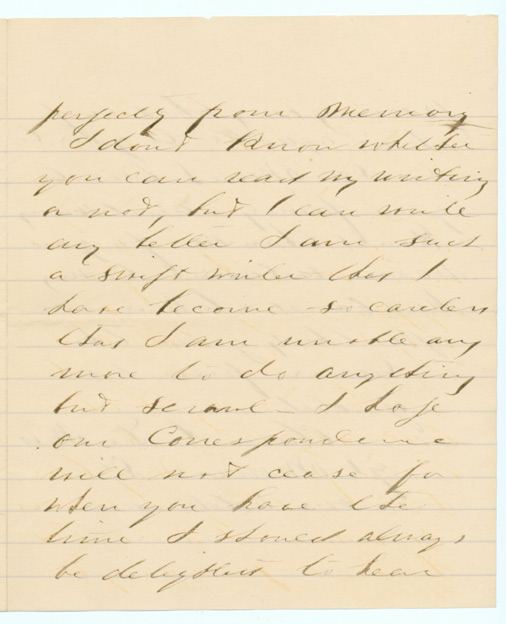 perfectly from Memory
I don't Know whether
you can read my writing
or not, but I can write
any better I am such
a swift writer that I
have become so careless
that I am unable any
more to do anything
but scrawl - I hope
our Correspondence
will not cease for
when you have the
time I should always
be delighted to hear